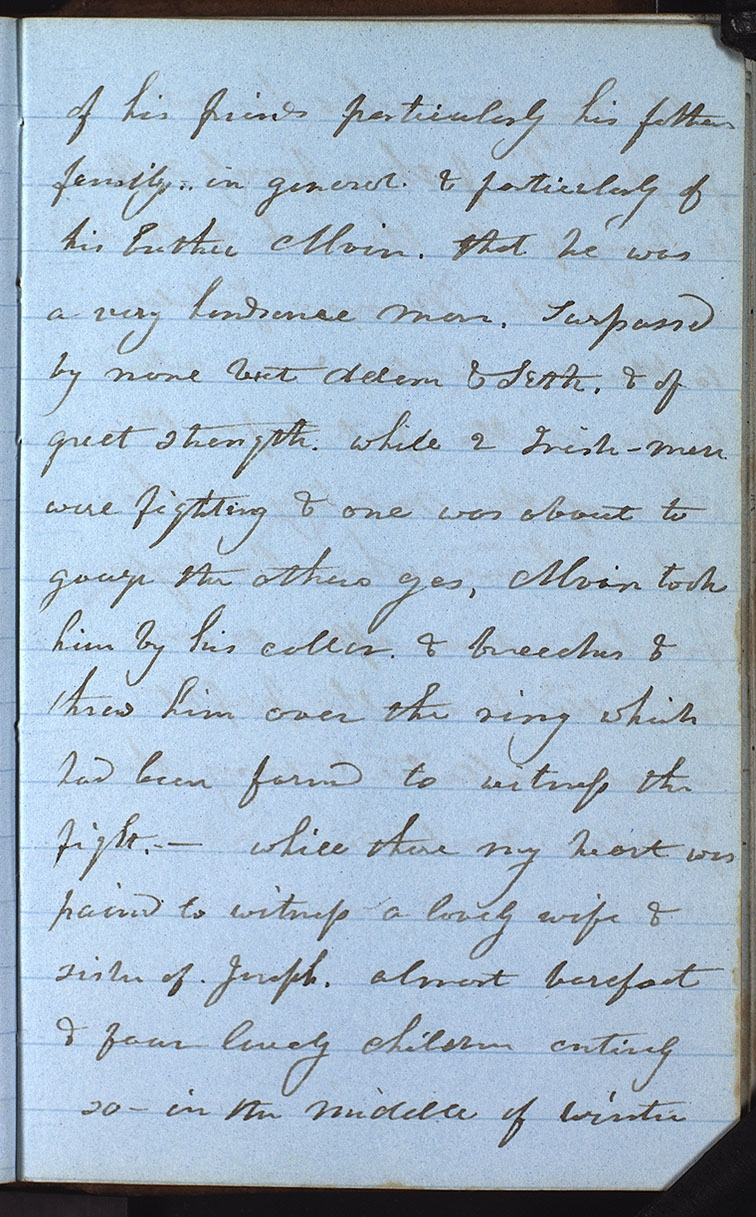 of his friends particularly his fathers
family.. in general. & particularly of
his Brother Alvin. that he was
a very handsome man. Surpassd
by none but Adam & Seth. & of
great strength. while 2 Irish-men
were fighting & one was about to
gouge the others eyes, Alvin took
him by his collar. & breeches &
threw him over the ring which
had been formd to witness the
fight.— while there my heart was
paind to witness a lovely wife &
sister of. Joseph. almost barefoot
& four lovely children entirely
so – in the middle of winter